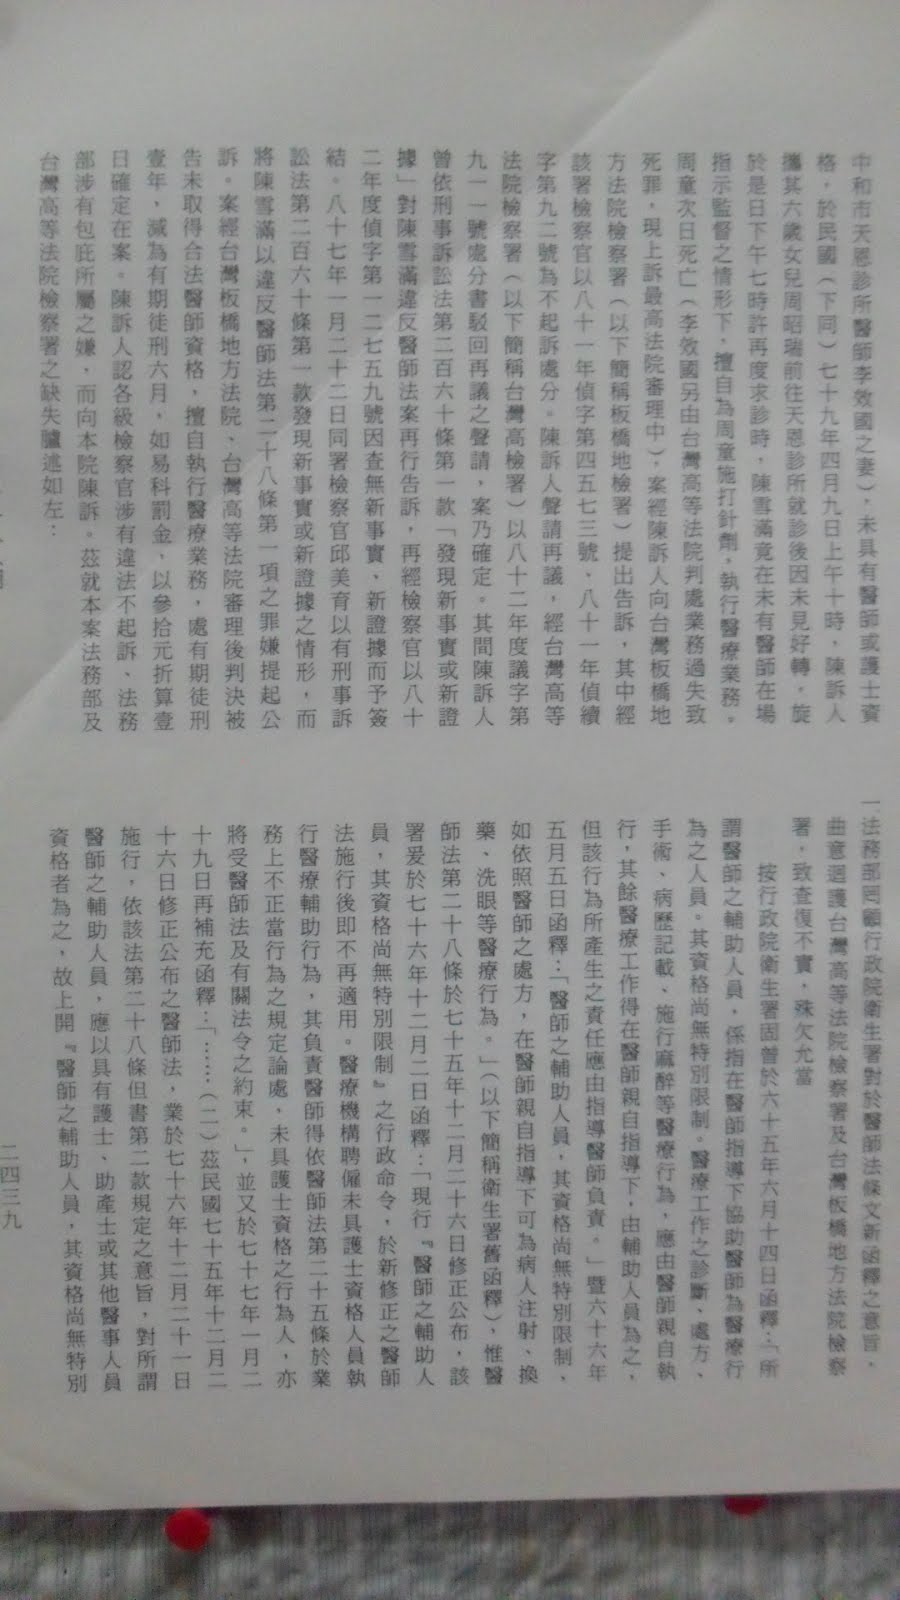 中和市天恩診所醫師李效國之妻），未具有醫師或護士資
格，於民國（下同）七十九年四月九日上午十時，陳訴人
攜其六歲女兒周昭瑞前往天恩診所就診後因未見好轉，旋
於是日下午七時許再度求診時，陳雪滿竟在未有醫師在場
指示監督之情形下，擅自為周童施打針劑，執行醫療業務。
周童次日死亡（李效國另由台灣高等法院判處業務過失致
死罪，現上訴最高法院審理中），案經陳訴人向台灣板橋地
方法院檢察署（以下簡稱板橋地檢署）提出告訴，其中經
該署檢察官以八十一年偵字第四五七三號、八十一年偵續
字第九二號為不起訴處分。陳訴人聲請再議，經台灣高等
法院檢察署（以下簡稱台灣高檢署）以八十二年度議字第
九一一號處分書駁回再議之聲請，案乃確定。其間陳訴人
曾依刑事訴訟法第二百六十條第一款「發現新事實或新證
據」對陳雪滿違反醫師法案再行告訴，再經檢察官以八十
二年度偵字第一二七五九號因查無新事實、新證據而予簽
結。八十七年一月二十二日同署檢察官邱美育以有刑事訴
訟法第二百六十條第一款發現新事實或新證據之情形，而
將陳雪滿以違反醫師法第二十八條第一項之罪嫌提起公
訴。案經台灣板橋地方法院、台灣高等法院審理後判決被
告未取得合法醫師資格，擅自執行醫療業務，處有期徒刑
壹年，減為有期徒刑六月，如易科罰金，以參拾元折算壹
日確定在案。陳訴人認各級檢察官涉有違法不起訴、法務
部涉有包庇所屬之嫌，而向本院陳訴。茲就本案法務部及
台灣高等法院檢察署之缺失臚述如左：
一法務部罔顧行政院衛生署對於醫師法條文新函釋之意旨，
曲意迴護台灣高等法院檢察署及台灣板橋地方法院檢察
署，致查復不實，殊欠允當
按行政院衛生署固曾於六十五年六月十四日函釋：「所
謂醫師之輔助人員，係指在醫師指導下協助醫師為醫療行
為之人員。其資格尚無特別限制。醫療工作之診斷、處方、
手術、病歷記載、施行麻醉等醫療行為，應由醫師親自執
行，其餘醫療工作得在醫師親自指導下，由輔助人員為之，
但該行為所產生之責任應由指導醫師負責。」暨六十六年
五月五日函釋：「醫師之輔助人員，其資格尚無特別限制，
如依照醫師之處方，在醫師親自指導下可為病人注射、換
藥、洗眼等醫療行為。」（以下簡稱衛生署舊函釋），惟醫
師法第二十八條於七十五年十二月二十六日修正公布，該
署爰於七十六年十二月二日函釋：「現行『醫師之輔助人
員，其資格尚無特別限制』之行政命令，於新修正之醫師
法施行後即不再適用。醫療機構聘僱未具護士資格人員執
行醫療輔助行為，其負責醫師得依醫師法第二十五條於業
務上不正當行為之規定論處，未具護士資格之行為人，亦
將受醫師法及有關法令之約束。」，並又於七十七年一月二
十九日再補充函釋：「……（二）茲民國七十五年十二月二
十六日修正公布之醫師法，業於七十六年十二月二十一日
施行，依該法第二十八條但書第二款規定之意旨，對所謂
醫師之輔助人員，應以具有護士、助產士或其他醫事人員
資格者為之，故上開『醫師之輔助人員，其資格尚無特別
二四三九